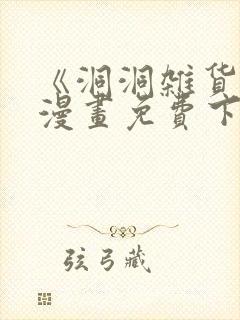 《洞洞雜货
漫畫免費下
弦弓藏